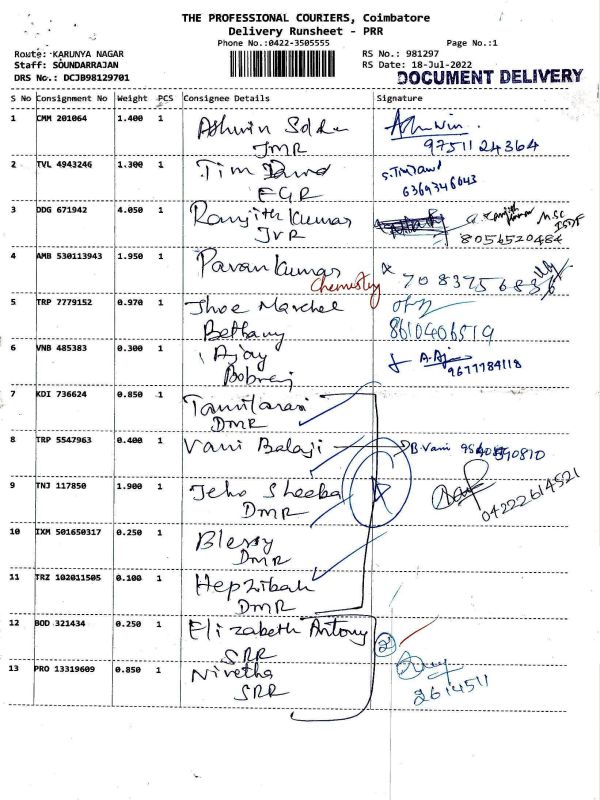 THE PROFESSIONAL COURIERS, Coimbatore
Delivery Runsheet - PRR
Phone No.:0422-3505555
Page No.:1
Route: KARUNYA NAGAR
RS No.: 981297
Staff: SOUNDARRAJAN
RS Date: 18-Jul-2022
DRS No.: DCJB98129701
DOCUMENT DELIVERY
S No Consignment No Weight PCS Consignee Details Signature
1 CMM 201064 1.400 1 Ashwin
JMR
9751124364
2 TVL 4943246 1.300 1 Tim David
EGR
6369346643
3 DDG 671942 4.050 1 Ranjith Kumar
JVR
8056520484
4 AMB 530113943 1.950 1 Pavan Kumar
Chemistry
5 TRP 7779152 0.970 1 Jhoe Marchel
Bethany
8610406519
6 VNB 485383 0.300 1 Ajay
Bobraj
A. Ajay
9677784118
7 KDI 736624 0.850 1 Tamilarasi
DMR
8 TRP 5547963 0.400 1 Vani Balaji
B. Vani
9 TNJ 117850 1.900 1 Jeho Sheeba
DMR
04222614521
10 IXM 501650317 0.250 1 Blessy
DMR
11 TRZ 102011505 0.100 1 Hepzibah
DMR
12 BOD 321434 0.250 1 Elizabeth Antony
SRR
2
13 PRO 13319609 0.850 1 Nivetha
SRR
2614511